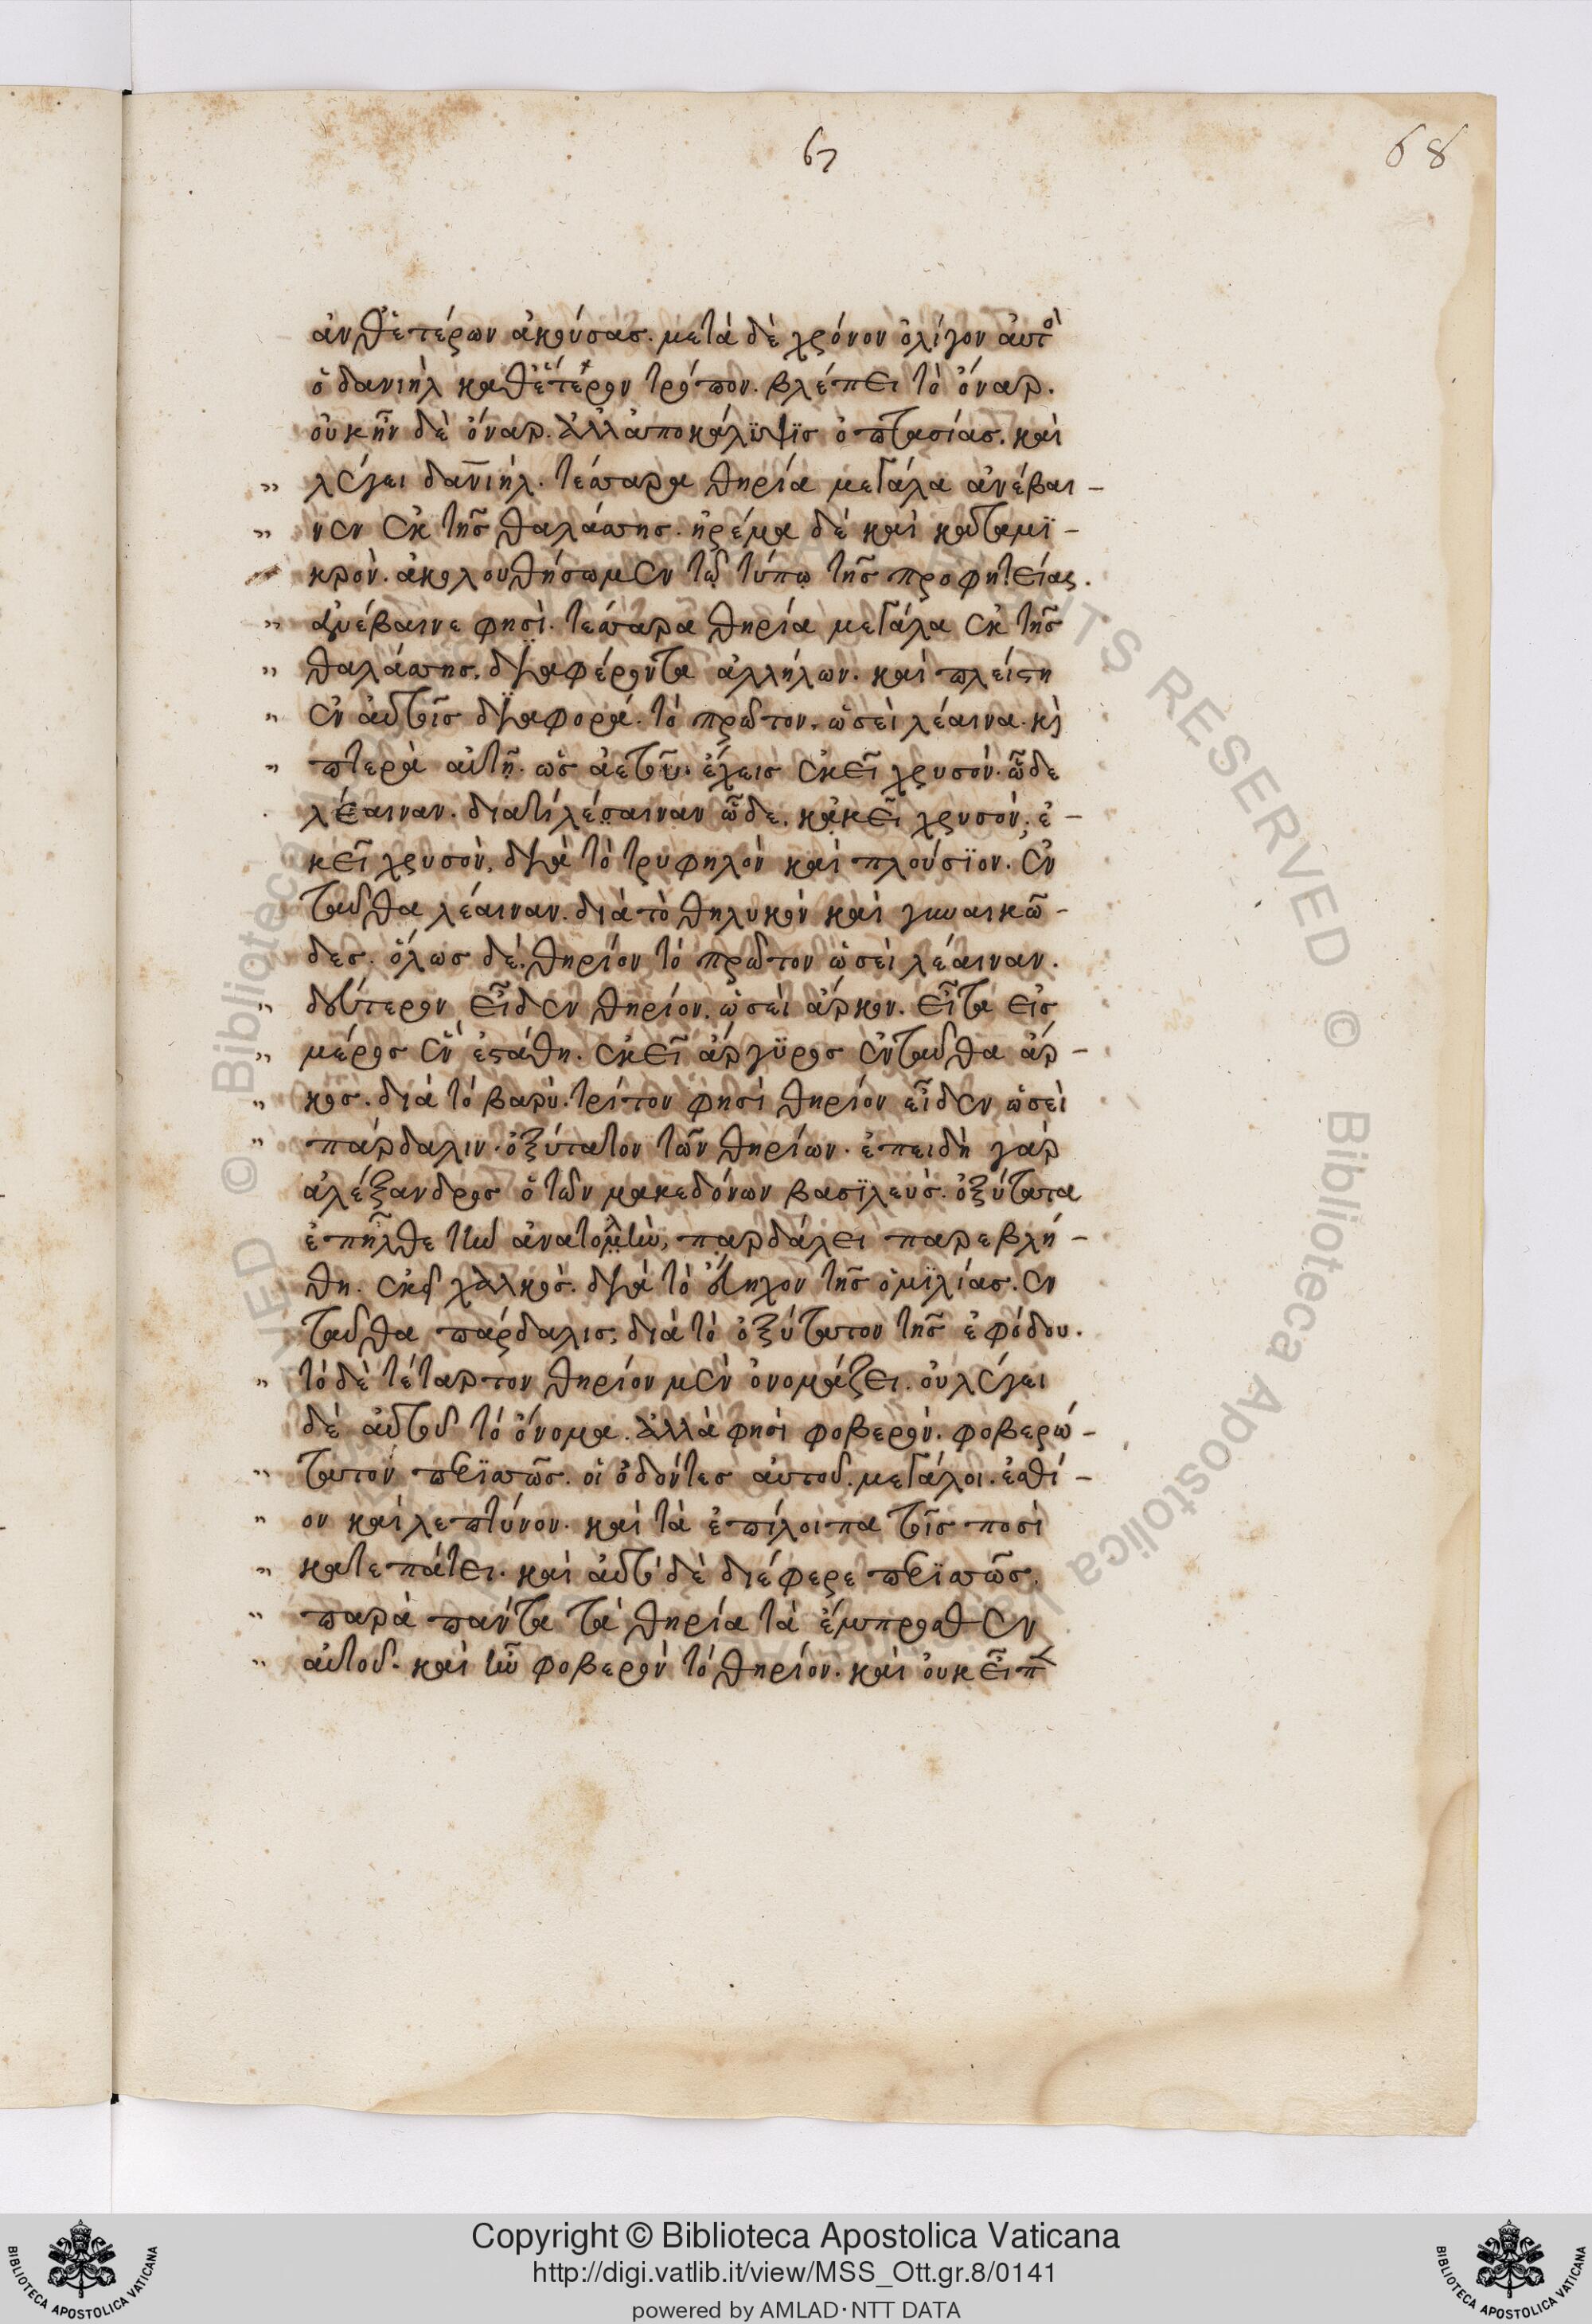 67
68
ἀνθ ἑτέρων ἀκούσας. μετὰ δὲ χρόνον ὀλίγον αὐτὸ
ὁ δανιὴλ καθ ἕτερον τρόπον. βλέπει τὸ ὄναρ.
οὐκ ἦν δὲ ὄναρ. ἀλλ ἀποκάλϋψϊς ὀπτασίας. καὶ
λέγει δανιήλ. τέσσαρα θηρία μεγάλα ἀνέβαι-
νεν ἐκ τῆς θαλάσσης. ἠρέμα δὲ καὶ καταμϊ-
κρὸν. ἀκολουθήσωμεν τῷ τύπῳ τῆς προφητείας.
ἀνέβαινε φησὶ. τέσσαρα θηρία μεγάλα ἐκ τῆς
θαλάσσης, δϊαφέροντα ἀλλήλων. καὶ πλείστη
ἐν αὐτοῖς δϊαφορά. τὸ πρῶτον, ὡσεὶ λέαινα. κὶ
πτερὰ αὐτῆ. ὡς ἀετοῦ. ἔχεις ἐκεῖ χρυσόν. ὧδε
λέαιναν. διατί λέαιναν ὧδε. κἀκεῖ χρυσόν; ἐ-
κεῖ χρυσὸν, δϊὰ τὸ τρυφηλὸν καὶ πλούσϊον. ἐν
ταῦθα λέαιναν. διὰ τὸ θηλυκὸν καὶ γυναικῶ-
δες. ὅλως δὲ. θηρίον τὸ πρῶτον ὡσεὶ λέαιναν.
δεύτερον εἶδεν θηρίον. ὡσεὶ ἄρκον. εἶτα εἰς
μέρος ἓν ἐστάθη. ἐκεῖ ἄργϋρος ἐνταῦθα ἄρ-
κος. διὰ τὸ βαρὺ. τρίτον φησὶ θηρίον εἶδεν ὡσεὶ
πάρδαλιν. ὀξύτατον τῶν θηρίων. ἐπειδὴ γὰρ
ἀλέξανδρος ὁ τῶν μακεδόνων βασϊλεὺς. ὀξύτατα
ἐπῆλθε τὴν ἀνατολὴν, παρδάλει παρεβλή-
θη. ἐκεῖ χαλκὸς. δϊὰ τὸ εὔηχον τῆς ὁμϊλίας. ἐν
ταῦθα πάρδαλις, διὰ τὸ ὀξύτατον τῆς ἐφόδου.
τὸ δὲ τέταρτον θηρίον μὲν ὀνομάζει. οὐ λέγει
δὲ αὐτοῦ τὸ ὄνομα. ἀλλὰ φησὶ φοβερὸν. φοβερώ-
τατον περϊσσῶς. οἱ ὀδόντες αὐτοῦ. μεγάλοι. ἐσθί-
ον καὶ λεπτύνον. καὶ τὰ ἐπίλοιπα τοῖς ποσὶ
κατεπάτει. καὶ αὐτὸ δὲ διέφερε περϊσσῶς,
παρὰ πάντα τὰ θηρία τὰ ἔμπροσθεν
αὐτοῦ. καὶ ἦν φοβερὸν τὸ θηρίον. καὶ οὐκ εἶπ
Copyright © Biblioteca Apostolica Vaticana
http://digi.vatlib.it/view/MSS_Ott.gr.8/0141
powered by AMLAD·NTT DATA